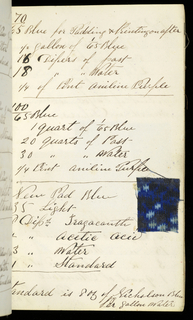 70
65 Blue for Padding & Printing on after
1/2 gallon of 65 Blue
18 Dippers of Past
18 " " Water
1/4 of Pint Aniline Purple
100
65 Blue
1 quart of 65 Blue
20 quarts of Past
30 " " Water
1/4 Pint Aniline Purple
New Pad Blue
55 Light
Dips Tragacanth
" Acitic Acid
3 " Water
1 " Standard
Standard is 8 oz of Nicholson Blue
1/2 gallon Water